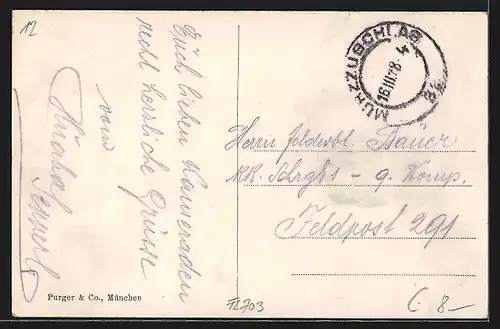 12
Euch lieben Kameraden
recht herzliche Grüsse
vom
MÜRZZUSCHLAG
16.III.18
4
Herrn Feldwbl. Bauer
KK. - 9. Komp.
Feldpost 291
Purger & Co., München
12703
C. 8-